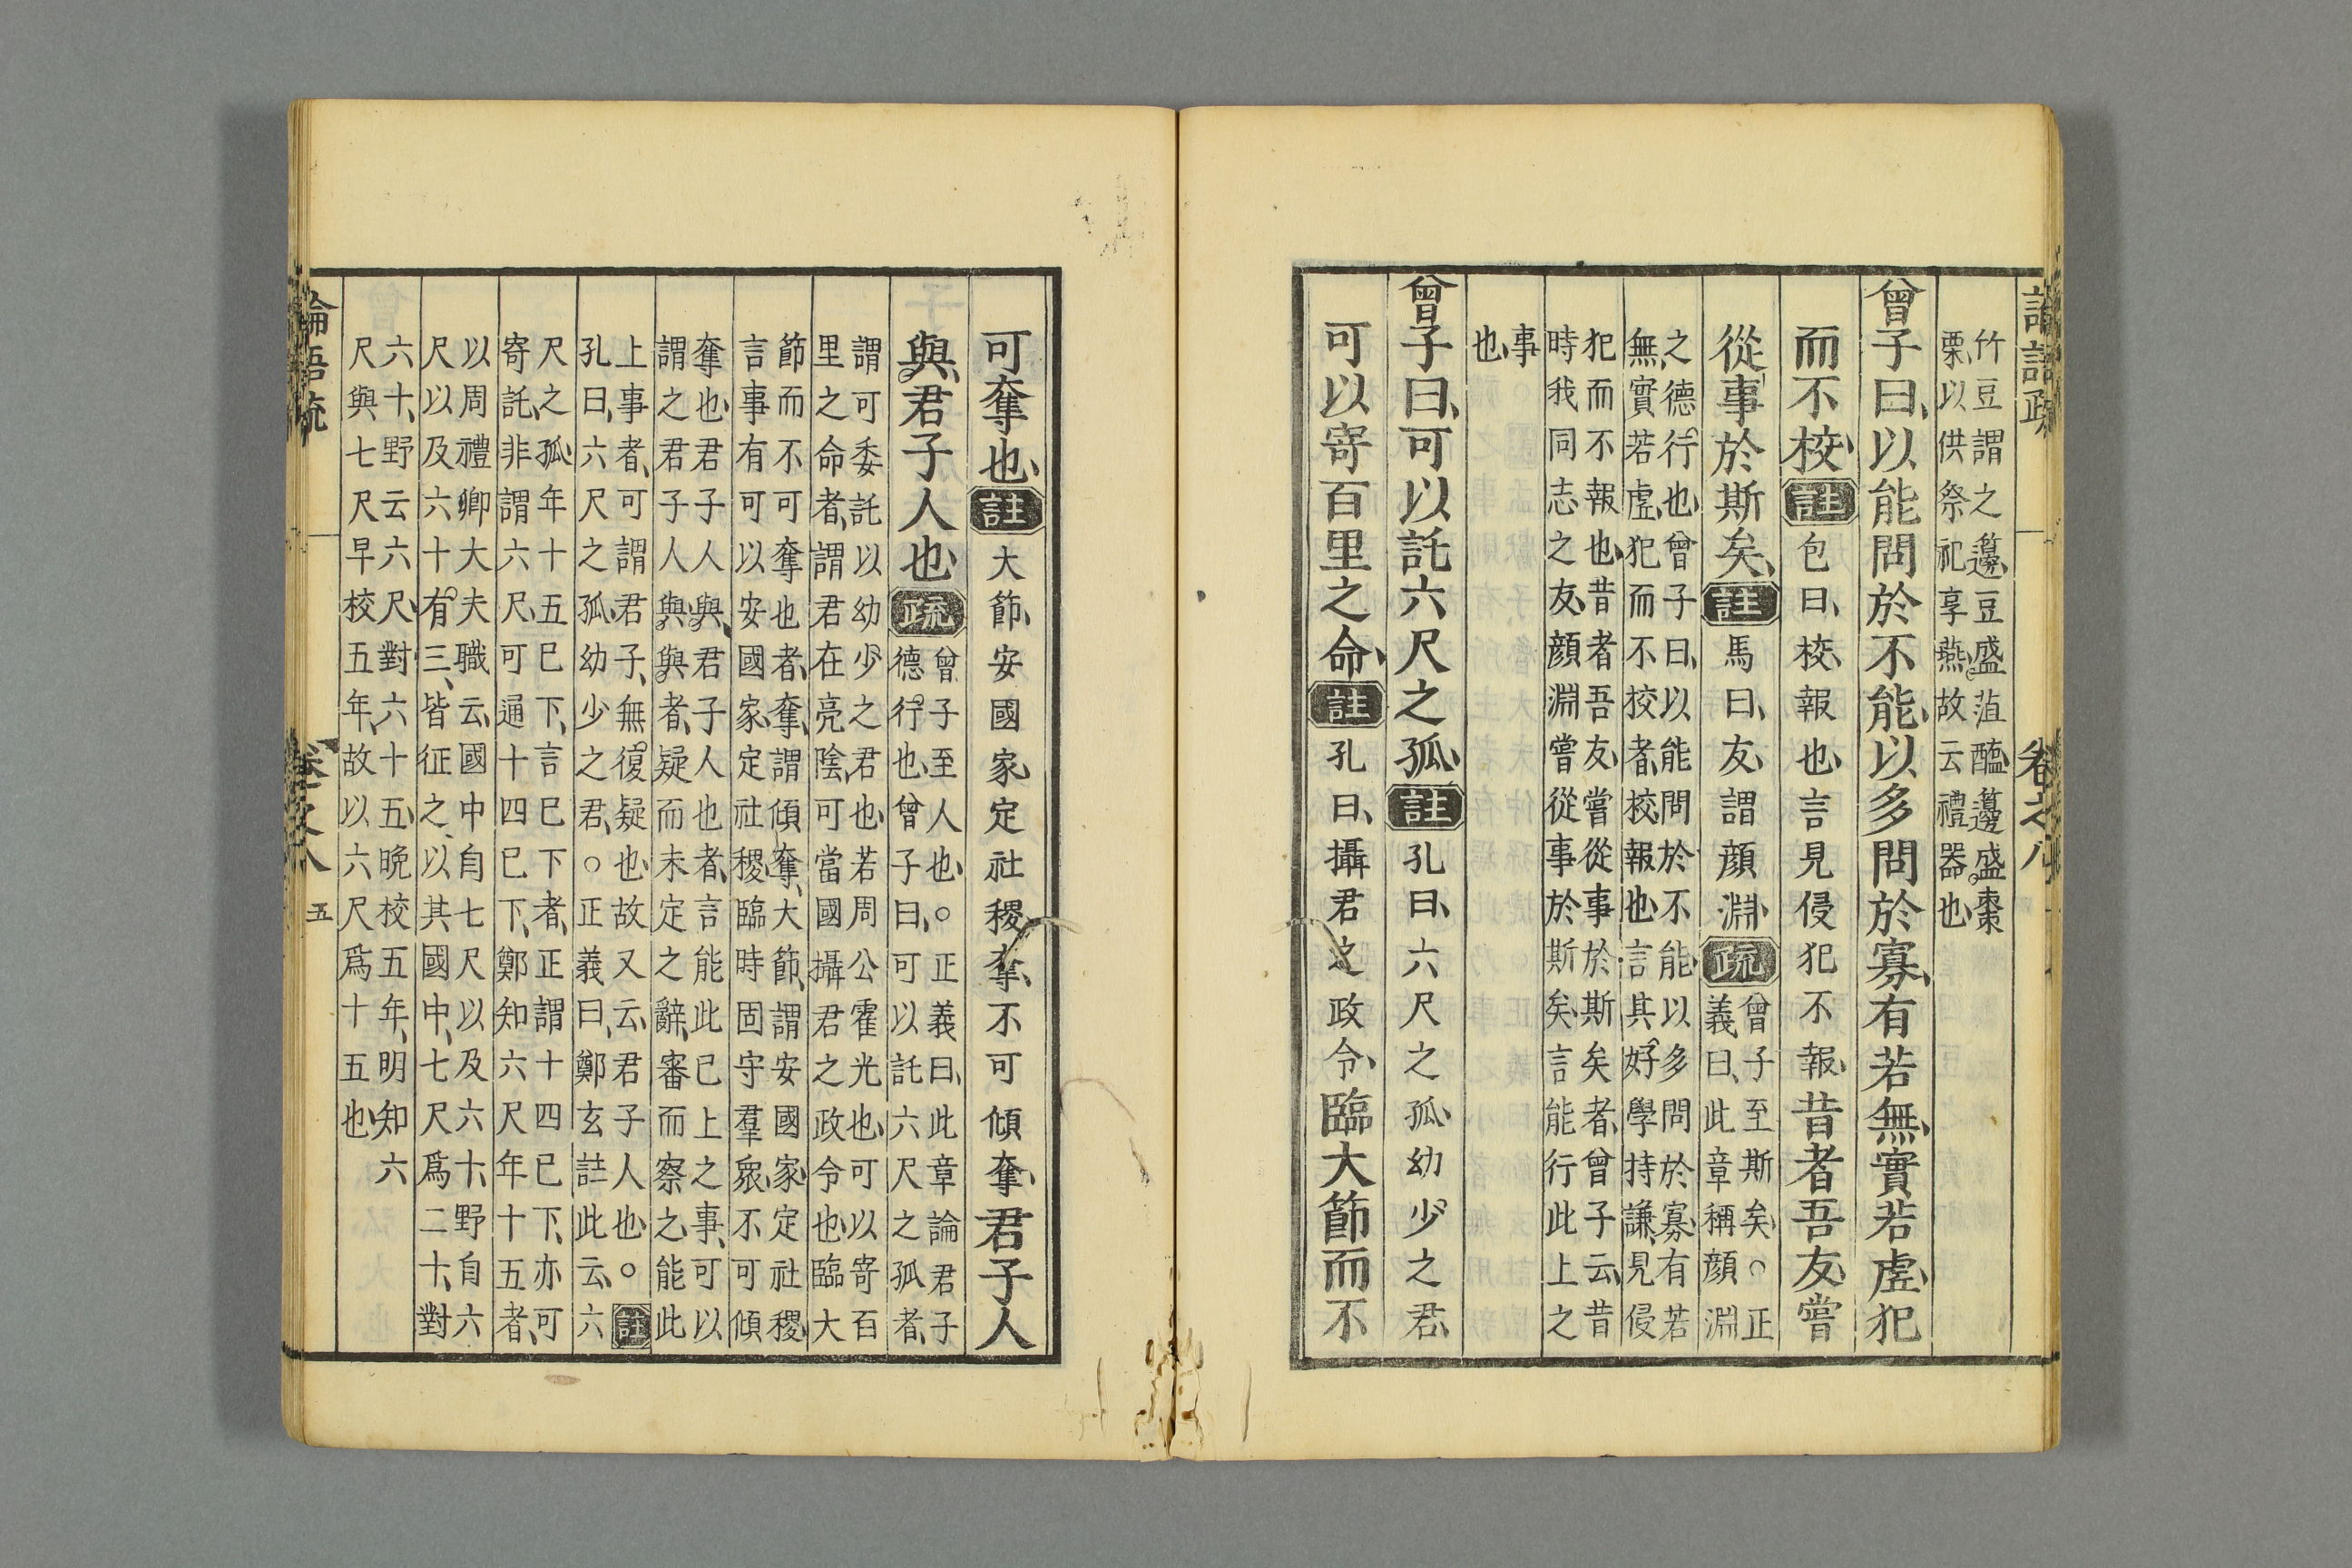 論語疏 卷之八
竹豆謂之籩、豆盛菹醯、籩盛棗
栗、以供祭祀享燕。故云禮器也
曾子曰、以能問於不能、以多問於寡、有若無、實若虛、犯
而不校、註包曰、校、報也、言見侵犯不報、昔者吾友、嘗
從事於斯矣、註馬曰、友、謂顏淵、疏
曾子至斯矣、○正
義曰、此章稱顏淵
之德行也、曾子曰、以能問於不能、以多問於寡、有若
無、實若虛、犯而不校者、校、報也、言其好學持謙、見侵
犯而不報也、昔者吾友、嘗從事於斯矣者、曾子云、昔
時我同志之友、顏淵嘗從事於斯矣、言能行此上之
事
也、
曾子曰、可以託六尺之孤、註孔曰、六尺之孤、幼少之君、
可以寄百里之命、註孔曰、攝君之政令、臨大節而不
可奪也、註大節、安國家、定社稷、奪、不可傾奪、君子人
與、君子人也、疏
曾子至人也、○正義曰、此章論君子
德行也、曾子曰、可以託六尺之孤者、
謂可委託以幼少之君也、若周公霍光也、可以寄百
里之命者、謂君在亮陰、可當國攝君之政令也、臨大
節而不可奪也者、奪、謂傾奪、大節、謂安國家、定社稷、
言事有可以安國家、定社稷、臨時固守、羣衆不可傾
奪也、君子人與、君子人也者、言能此已上之事、可以
謂之君子人與、與者、疑而未定之辭、審而察之、能此
上事者、可謂君子、無復疑也、故又云、君子人也、○註
孔曰、六尺之孤、幼少之君、○正義曰、鄭玄註此云、六
尺之孤、年十五已下、言已下者、正謂十四已下、亦可
寄託、非謂六尺、可通十四已下、鄭知六尺年十五者、
以周禮鄉大夫職云、國中自七尺以及六十、野自六
尺以及六十有三、皆征之、以其國中、七尺爲二十、對
六十、野云六尺、對六十五、晚校五年、明知六
尺與七尺早校五年、故以六尺爲十五也、
論語疏 卷之八 五